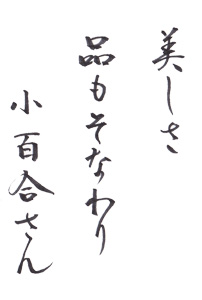 美しさ
品もそなわり
小百合さん